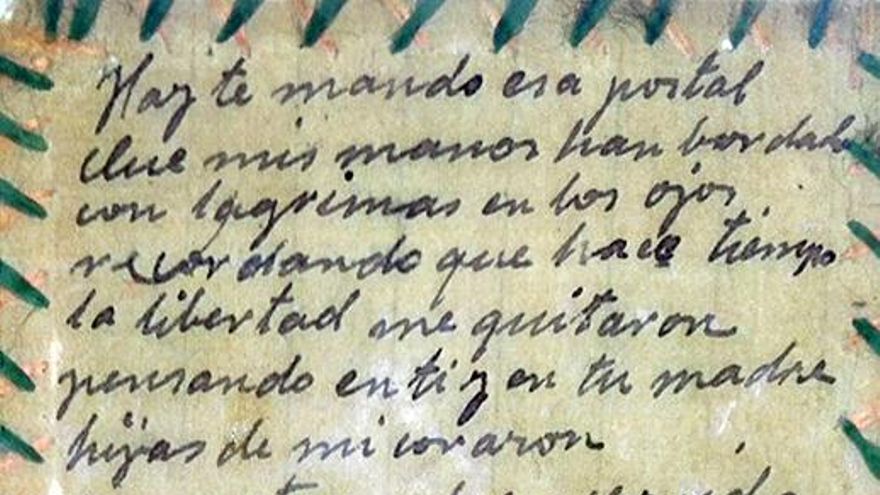 Hay te mando esa postal
Que mis manos han bordado
con lagrimas en los ojos
recordando que hace tiempo
la libertad me quitaron
pensando en ti y en tu madre
hijas de mi corazon